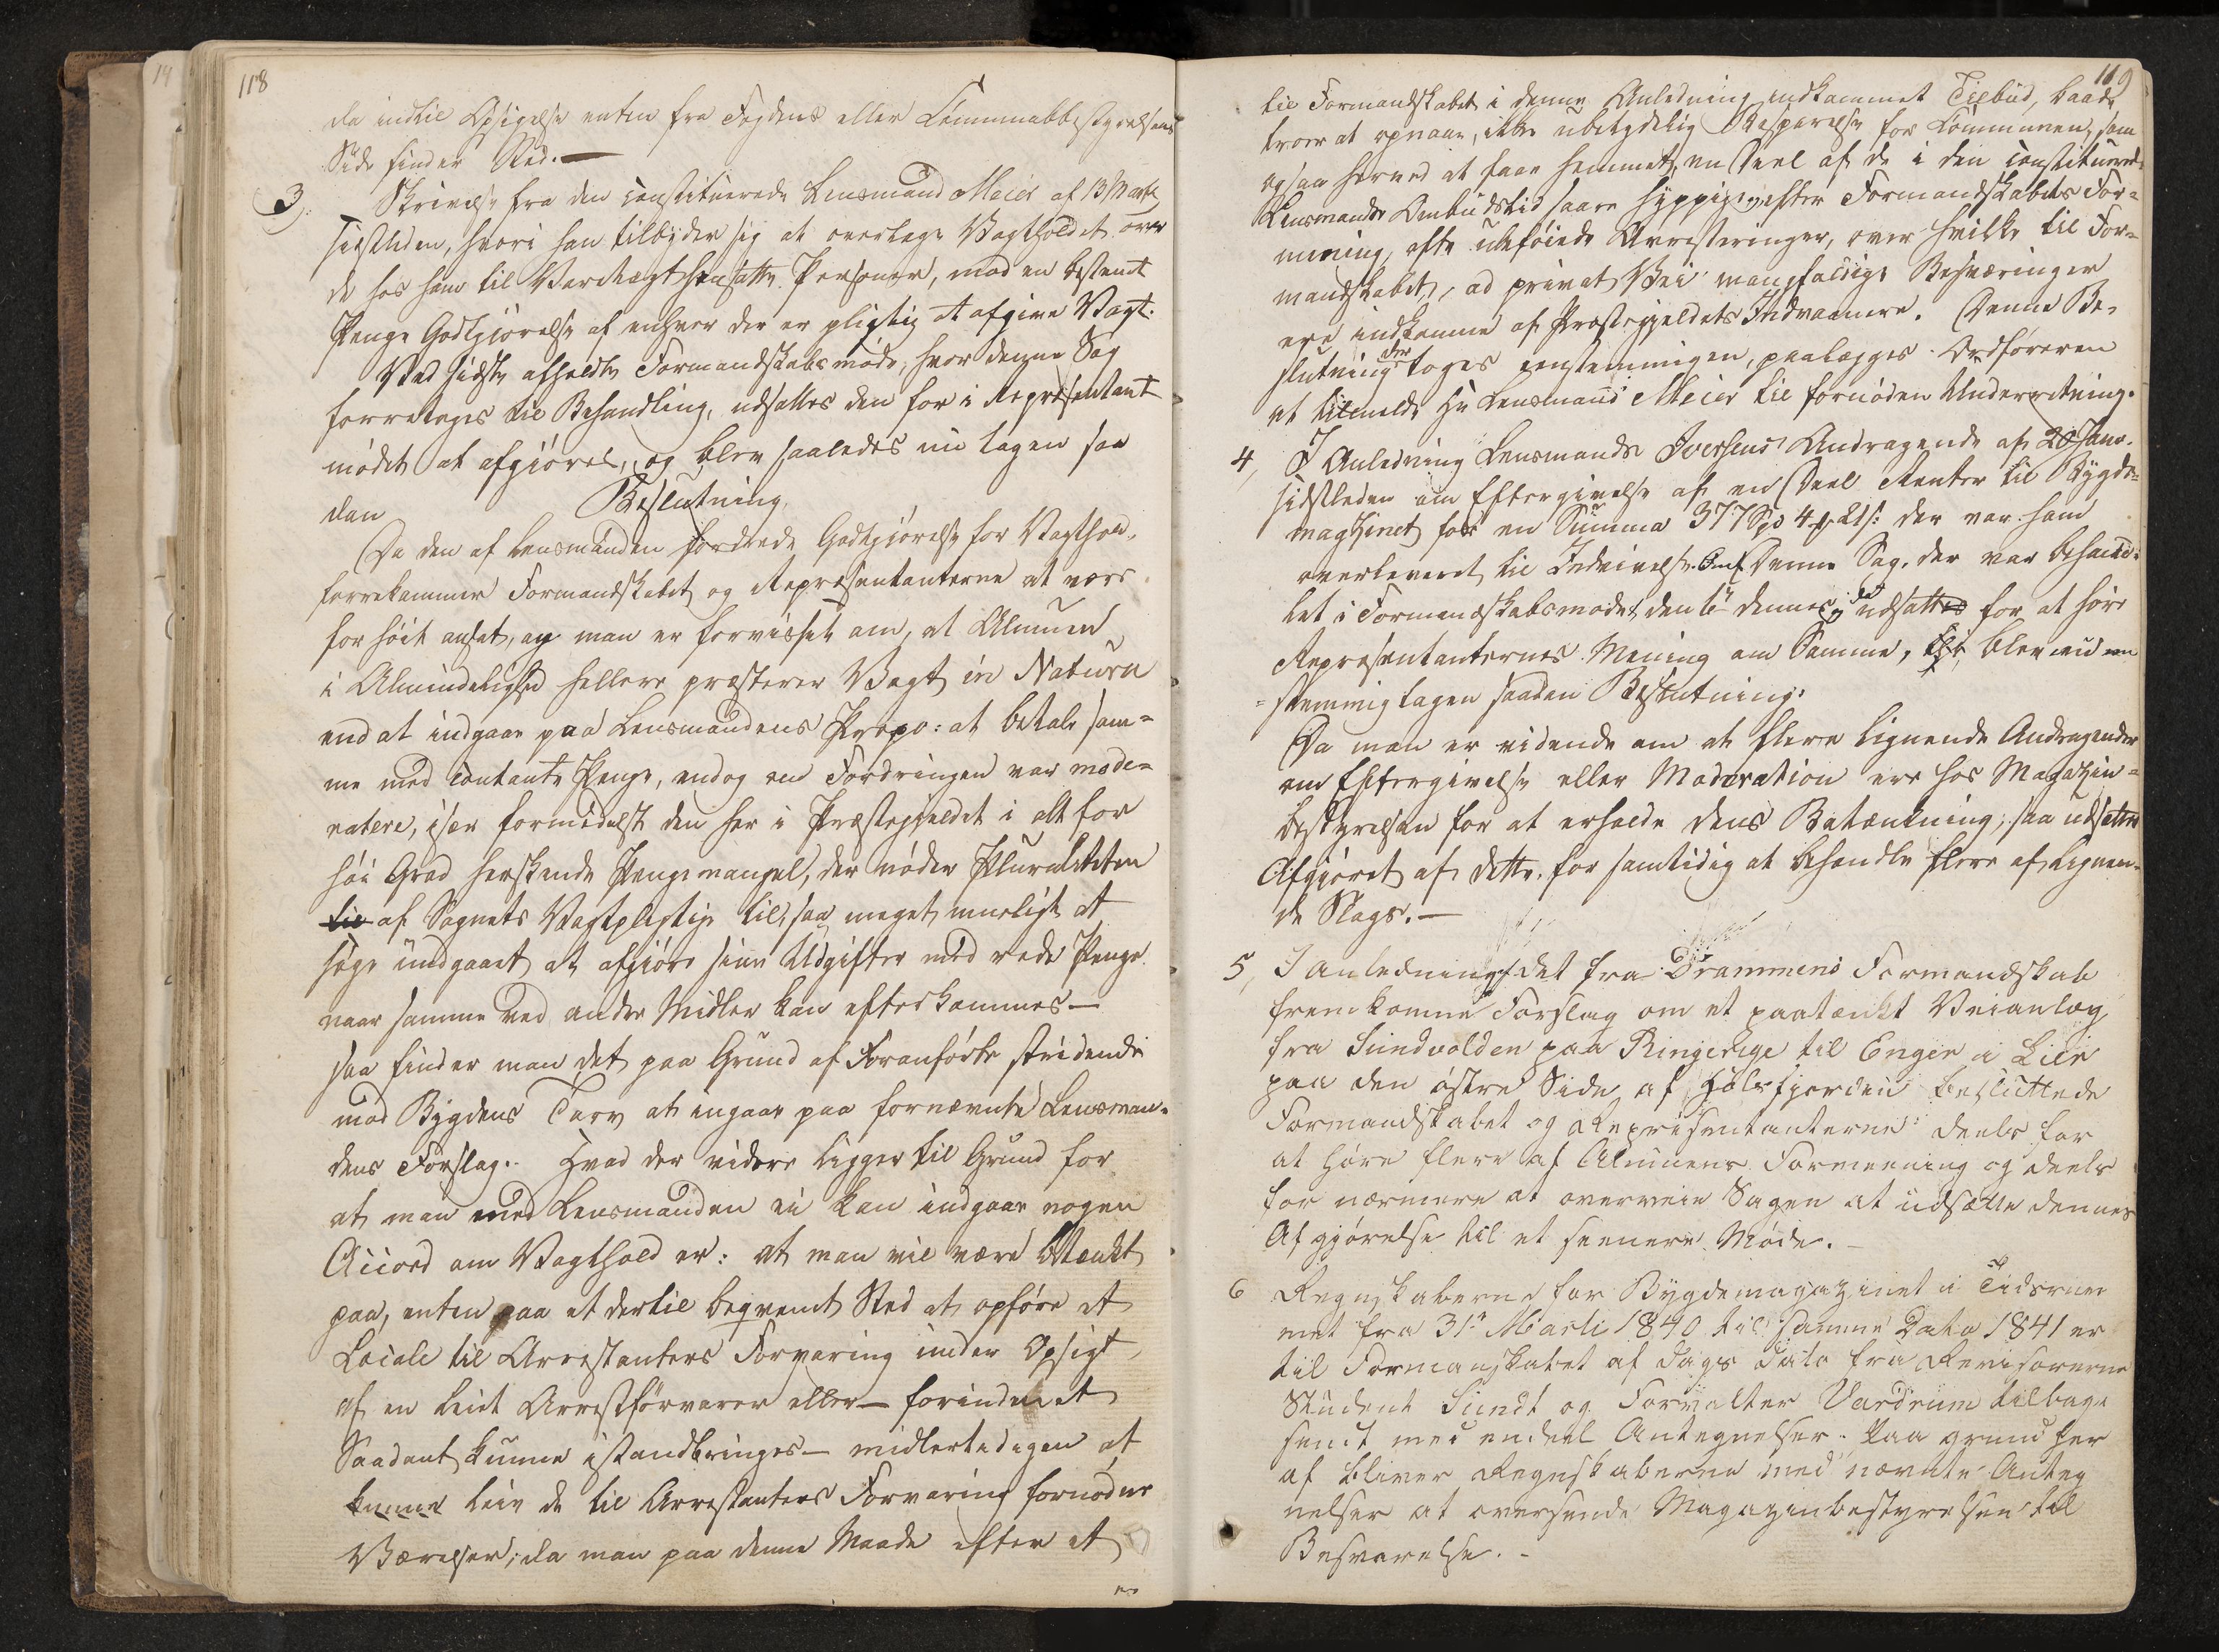 118
da indtil Opsigelse enten fra Fogdens eller Communebestyrelsens
Side finder Sted.—
3, Skrivelse fra den constituerede Lensmand Meier af 13 Marts
sidstleden, hvori han tilbyder sig at overtage Vagtholdet over
de hos ham til Varetægt hensatte Personer, mod en bestemt
Penge Godtgjørelse af enhver der er pligtig at afgive Vagt.
Ved sidste afholdte Formandskabsmøde, hvor denne Sag
forretoges til Behandling, udsattes den for i Repræsentant
mødet at afgjøres, og blev saaledes nu tagen saa
dan Beslutning
Da den af Lensmanden fordrede Godtgjørelse for Vagthold,
forekommer Formandskabet og Repræsentanterne at være
for høit ansat, og man er forvisset om, at Almuen
i Almindelighed hellere præsterer Vagt in Natura
end at indgaae paa Lensmandens Propo: at betale sam=
me med contante Penge, endog om Fordringen var mode=
ratere, især formedelst den her i Præstegjeldet i alt for
høi Grad herskende Pengemangel, der nøder Pluraliteten
til af Sognets Vagtpligtige til, saa meget mueligt at
søge undgaaet at afgjøre sine Udgifter med rede Penge
naar samme ved andre Midler kan efterkommes—
saa finder man det paa Grund af Foranførte stridende
mod Bygdens Tarv at ingaae paa fornævnte Lensman=
dens Forslag. Hvad der videre ligger til Grund for
at man med Lensmanden ei kan indgaae nogen
Accord om Vagthold er: at man vil være betænkt
paa, enten paa et dertil beqvemt Sted at opføre et
Locale til Arrestanters Forvaring under Opsigt
af en leiet Arrestforvarer eller— forinden et
Saadant kunne istandbringes— midlertidigen at
kunne leie de til Arrestanters Forvaring fornødne
Værelser; da man paa denne Maade efter et
119
til Formandskabet i denne Anledning indkommet Tilbud, baade
troer at opnaae, ikke ubetydelig Besparelse for Communen, som
ogsaa herved at faae hemmet, en Deel af de i den constituerede
Lensmands Ombudstid saare hyppige, efter Formandskabets For=
mening, ofte ubeføiede Arresteringer, over hvilke til For=
mandskabet, ad privat Vei mangfoldige Besværinger
ere indkomne af Præstegjeldets Indvaanere. Denne Be=
slutning der toges eenstemmigen, paalægges Ordføreren
at tilmelde Hr Lensmand Meier til fornøden Underretning.
4, I Anledning Lensmands Iversens Andragende af 20 Janr.
sidstleden om Eftergivelse af en Deel Renter til Bygde=
magazinet for en Summa 377 Spd 4 # 21 s: der var ham
overleveret til Inddrivelse. Denne Sag, der var behand=
let i Formandskabsmødet den 6te dennes, da udsattes for at høre
Repræsentanternes Mening om Samme, blev nu een
=stemmig tagen saadan Beslutning:
Da man er vidende om at flere lignende Andragender
om Eftergivelse eller Moderation ere hos Magazin=
bestyrelsen for at erholde dens Betænkning, saa udsættes
Afgjøret af dette, for samtidig at behandle flere af lignen=
de Slags.—
5, I anledning det fra Drammens Formandskab
fremkomne Forslag om et paatænkt Veianlæg
fra Sundvolden paa Ringerige til Enger i Lier
paa den østre Side af Holsfjorden besluttede
Formandskabet og Repræsentanterne deels for
at høre flere af Almuens Formening og deels
for nærmere at overveie Sagen at udsætte dennes
Afgjørelse til et seenere Møde.—
6 Regnskaberne for Bygdemagazinet i Tidsrum
met fra 31te Marti 1840 til samme Dato 1841 er
til Formanskabet af Dags Dato fra Revisorerne
Student Sundt og Forvalter Vardrum tilbage
sendt med endeel Antegnelser. Paa grund her
af bliver Regnskaberne med nævnte Anteg
nelser at oversende Magazinbestyrelsen til
Besvarelse.—